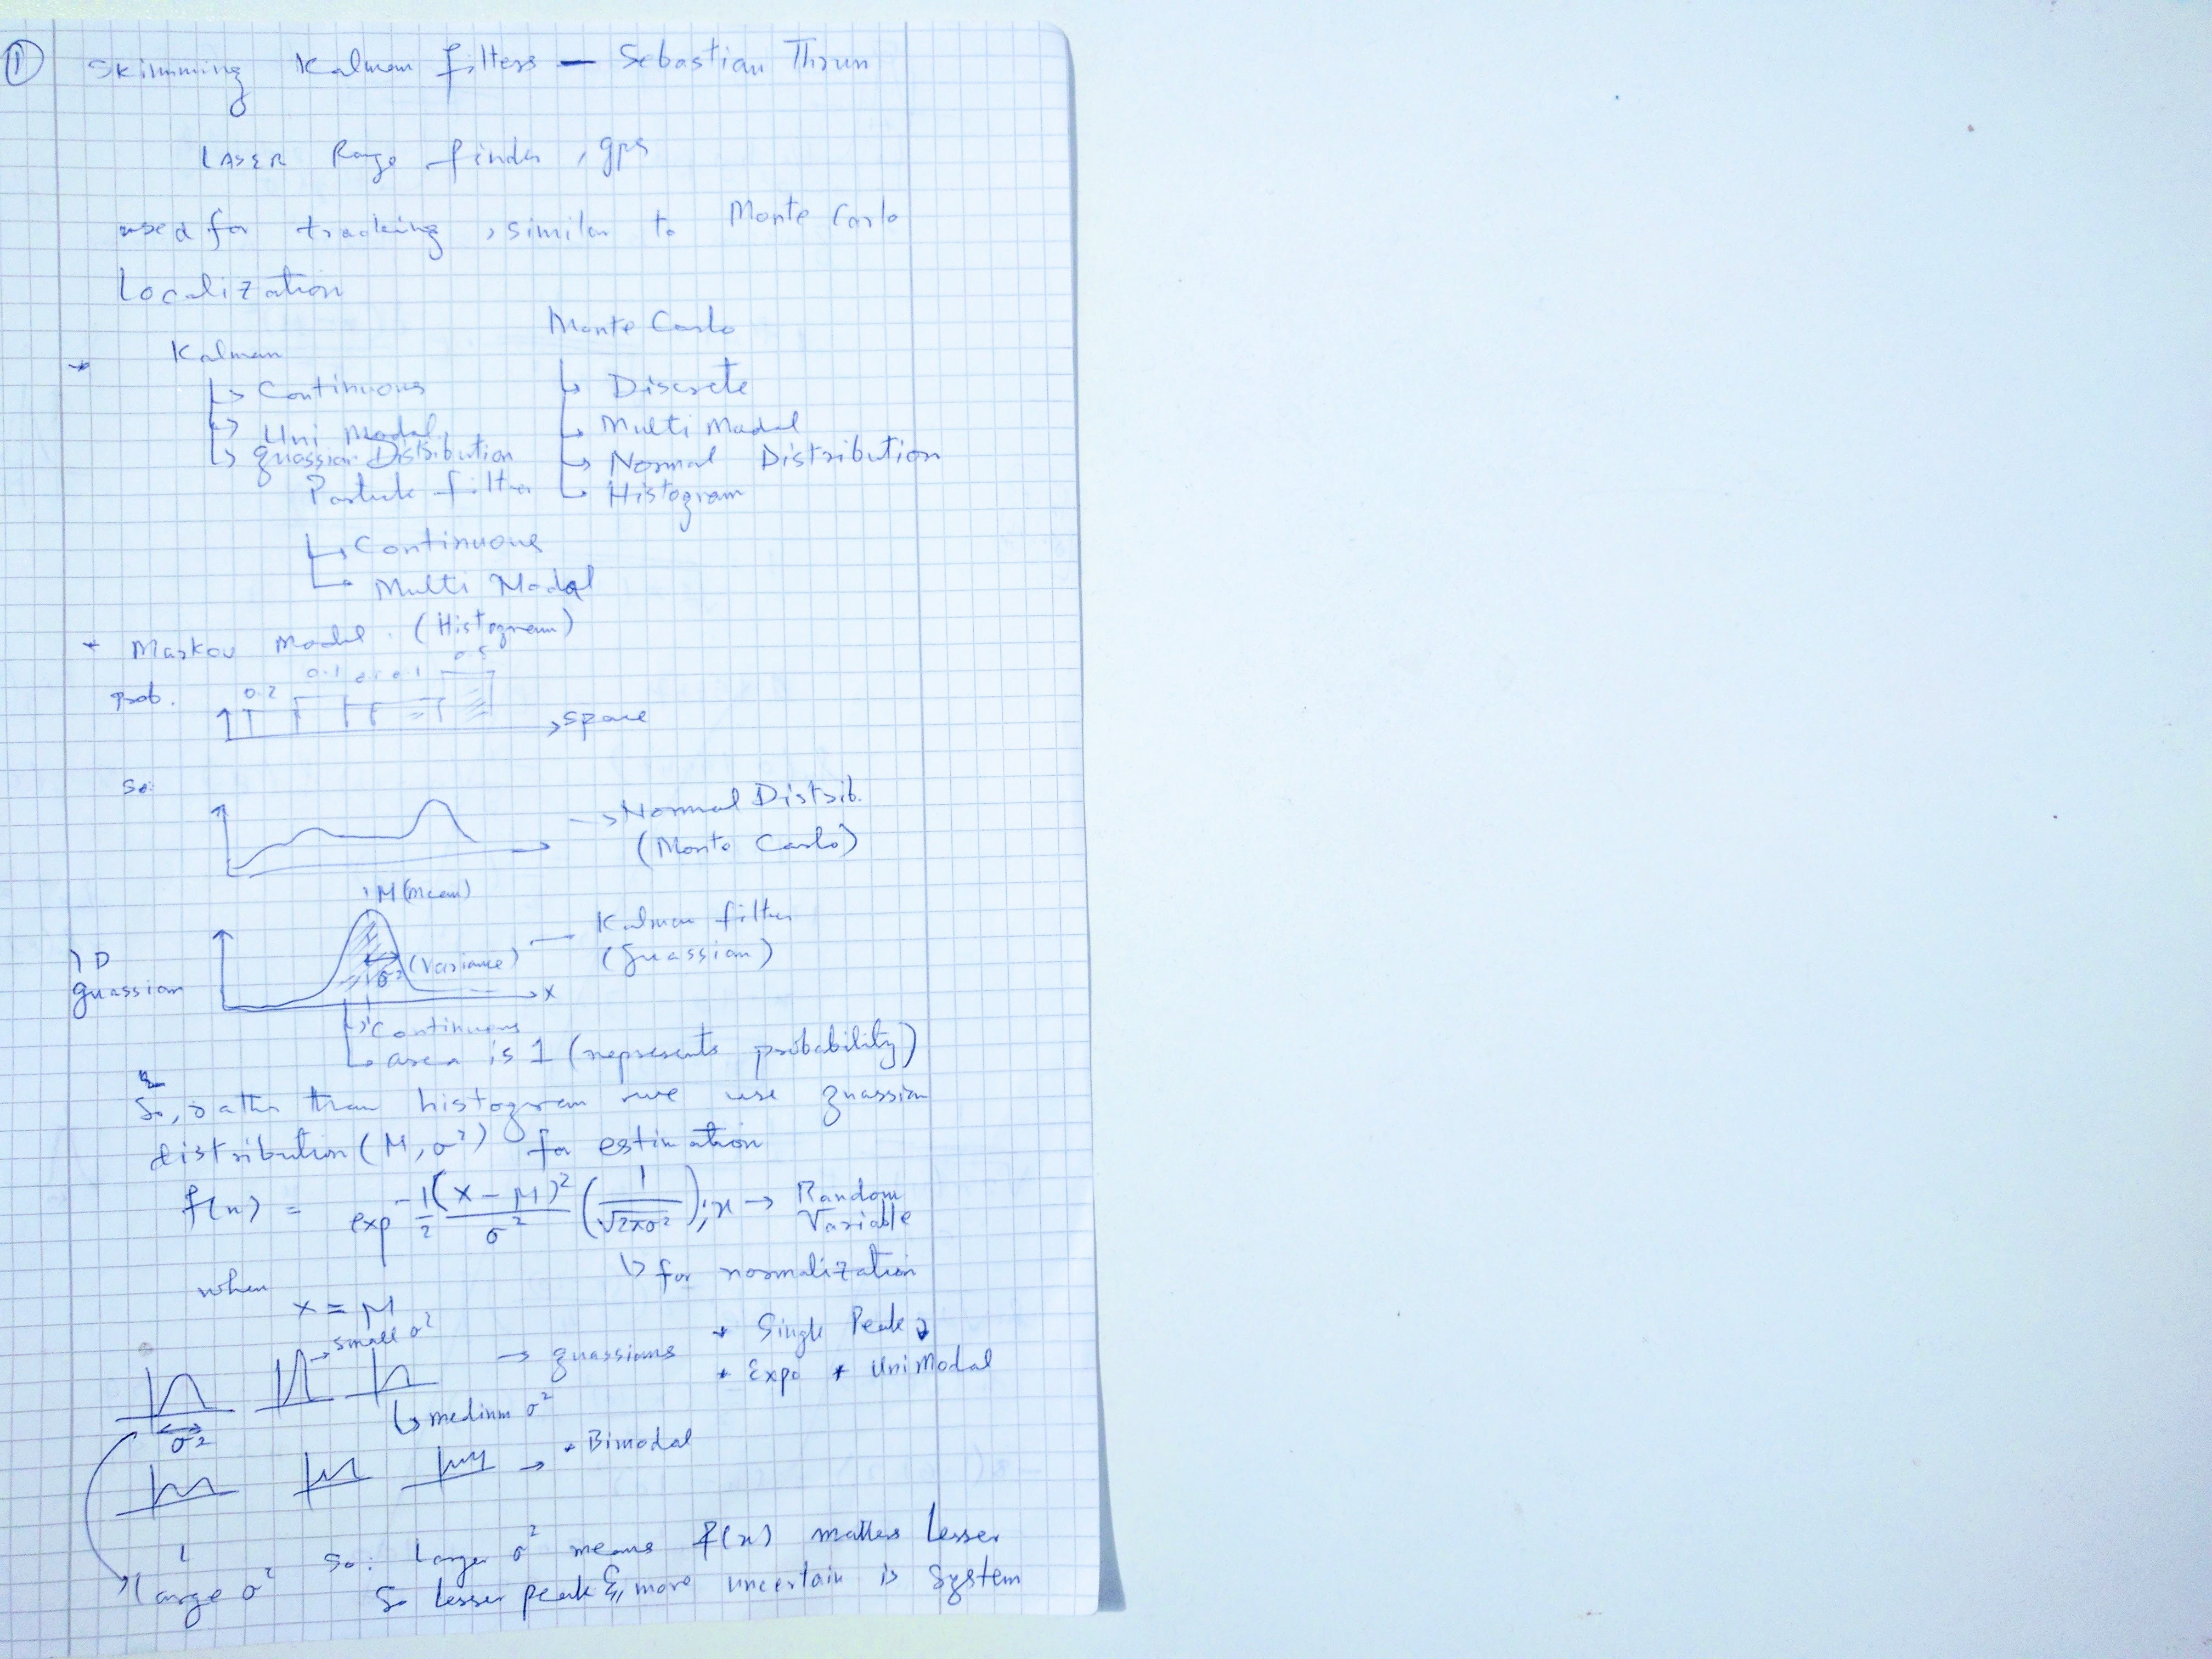 1
Skimming Kalman filters — Sebastian Thrun
LASER Range finder, gps
used for tracking, similar to Monte Carlo
Localization
* Kalman
↳ Continuous
↳ Uni Modal
↳ guassian Distribution
Monte Carlo
↳ Discrete
↳ Multi Modal
↳ Normal Distribution
↳ Histogram
Particle filter
↳ Continuous
↳ Multi Modal
* Markov Model. (Histogram)
prob.
0.2 0.1 0.1 0.1 0.5
→ space
So:
→ Normal Distrib.
(Monte Carlo)
M (mean)
1D
guassian
σ² (Variance)
— Kalman filter
(guassian)
→ x
↳ Continuous
↳ area is 1 (represents probability)
So, rather than histogram we use guassian
distribution (M, σ²) for estimation
f(x) = exp -1/2 (x-M)²/σ² (1/√2πσ²); x → Random Variable
↳ for normalization
when
x = M
→ small σ²
→ guassians
* Single Peak
* Expo * UniModal
σ²
↳ medium σ²
→ * Bimodal
large σ²
So: Larger σ² means f(x) matters lesser
So lesser peak & more uncertain is system